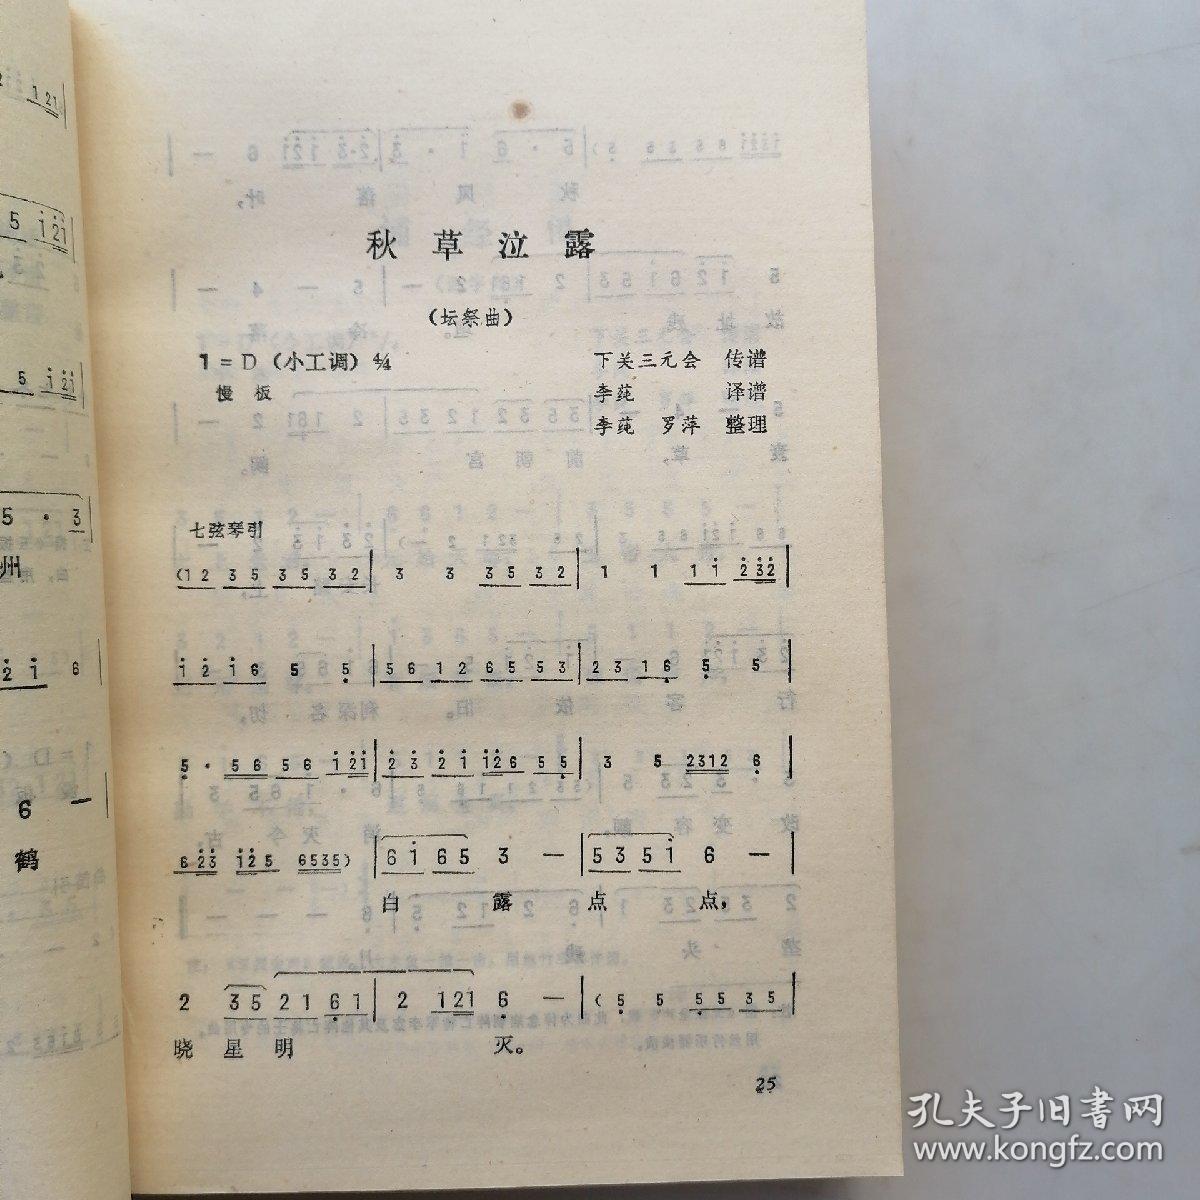 秋草泣露
(坛祭曲)
1=D(小工调)4/4 下关三元会 传谱
慢板 李莼 译谱
李莼 罗萍 整理
七弦琴引
(1 2 3 5 3 5 3 2 | 3 3 3 5 3 2 | 1 1 1 i 2 3 2 |
i 2 i 6 5 5 | 5 6 1 2 6 5 5 3 | 2 3 1 6 5 5 |
5 · 5 6 5 6 i 2 i | 2 3 2 i i 2 6 5 5 | 3 5 2 3 1 2 6 |
6 2 3 i 2 5 6 5 3 5) | 6 i 6 5 3 — | 5 3 5 i 6 — |
白 露 点 点,
2 3 5 2 1 6 1 | 2 1 2 1 6 — | (5 5 5 5 3 5 |
晓 星 明 灭。
25
州
6 —
鹤
孔夫子旧书网
www.kongfz.com